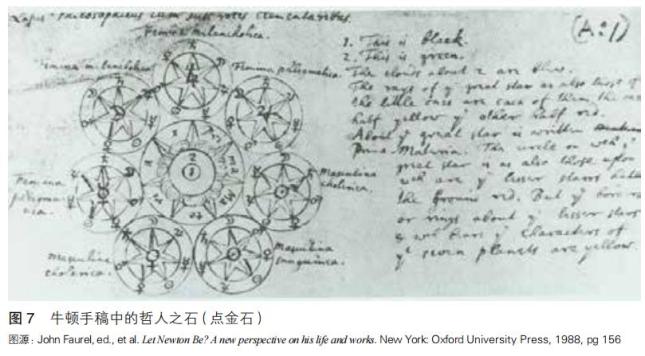 Lapis Philosophicus cum suis rotis elementaribus.
Femina melancholica.
Femina melancholica
Femina phlegmatica.
Femina
phlegma
tica.
Masculina
cholerica.
Masculina
cholerica.
Masculina
sanguinea.
(A:1)
1. This is black.
2. This is green.
The clouds about 2 are blew.
The rays of yͤ great star as also those of
the little ones are each of them, the one
half yellow yͤ other half red.
About yͤ great star is written
Prima Materia. The circle on wᶜʰ yͤ
great star is as also those upon
wᶜʰ are yͤ lesser starrs
the ground red. But yͤ
or rings about yͤ lesser starrs
yͤ characters of
yͤ seven planets are yellow.
图 7 牛顿手稿中的哲人之石(点金石)
图源: John Faurel, ed., et al. Let Newton Be? A new perspective on his life and works. New York: Oxford University Press, 1988, pg 156